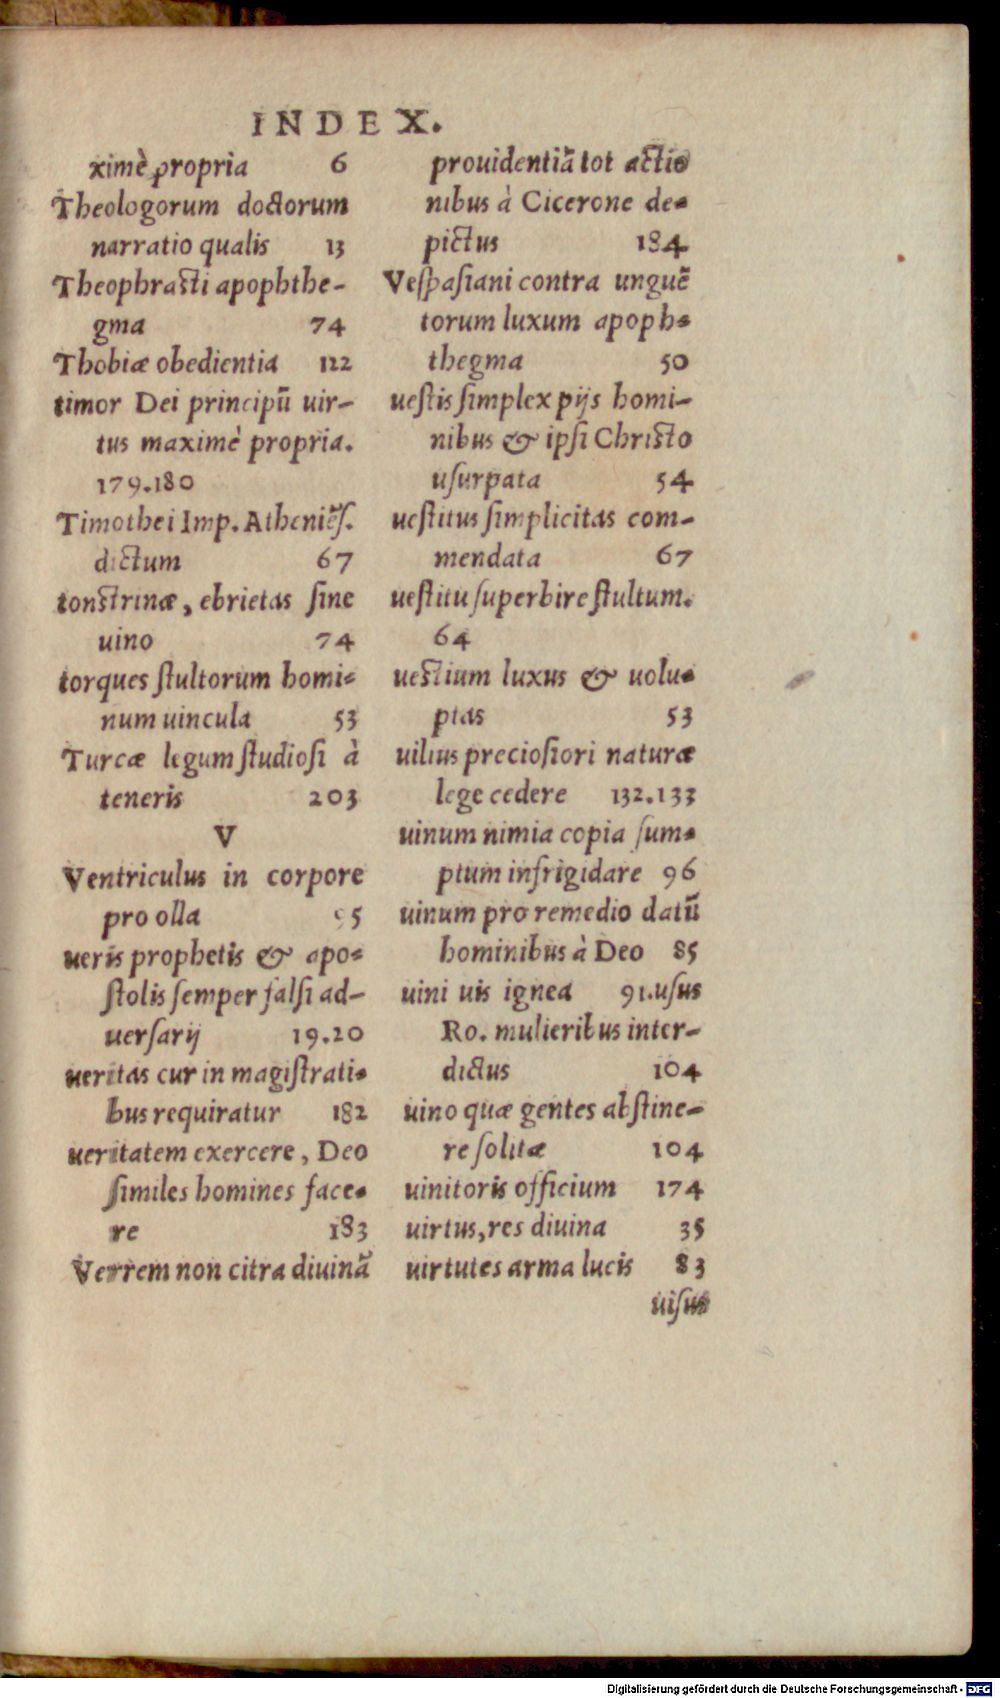 INDEX.
ximè propria 6
Theologorum doctorum
narratio qualis 13
Theophrasti apophthe-
gma 74
Thobiæ obedientia 122
timor Dei principũ uir-
tus maximè propria.
179.180
Timothei Imp. Atheniẽs.
dictum 67
tonstrinæ, ebrietas sine
uino 74
torques stultorum homi-
num uincula 53
Turcæ legum studiosi à
teneris 203
V
Ventriculus in corpore
pro olla 95
ueris prophetis & apo-
stolis semper falsi ad-
uersarij 19.20
ueritas cur in magistrati-
bus requiratur 182
ueritatem exercere, Deo
similes homines face-
re 183
Verrem non citra diuinã
prouidentiã tot actio
nibus à Cicerone de-
pictus 184
Vespasiani contra unguẽ
torum luxum apoph-
thegma 50
uestis simplex pijs homi-
nibus & ipsi Christo
usurpata 54
uestitus simplicitas com-
mendata 67
uestitu superbire stultum.
64
uestium luxus & uolu-
ptas 53
uilius preciosiori naturæ
lege cedere 132.133
uinum nimia copia sum-
ptum infrigidare 96
uinum pro remedio datũ
hominibus à Deo 85
uini uis ignea 91.usus
Ro. mulieribus inter-
dictus 104
uino quæ gentes abstine-
re solitæ 104
uinitoris officium 174
uirtus, res diuina 35
uirtutes arma lucis 83
uisus
Digitalisierung gefördert durch die Deutsche Forschungsgemeinschaft - DFG